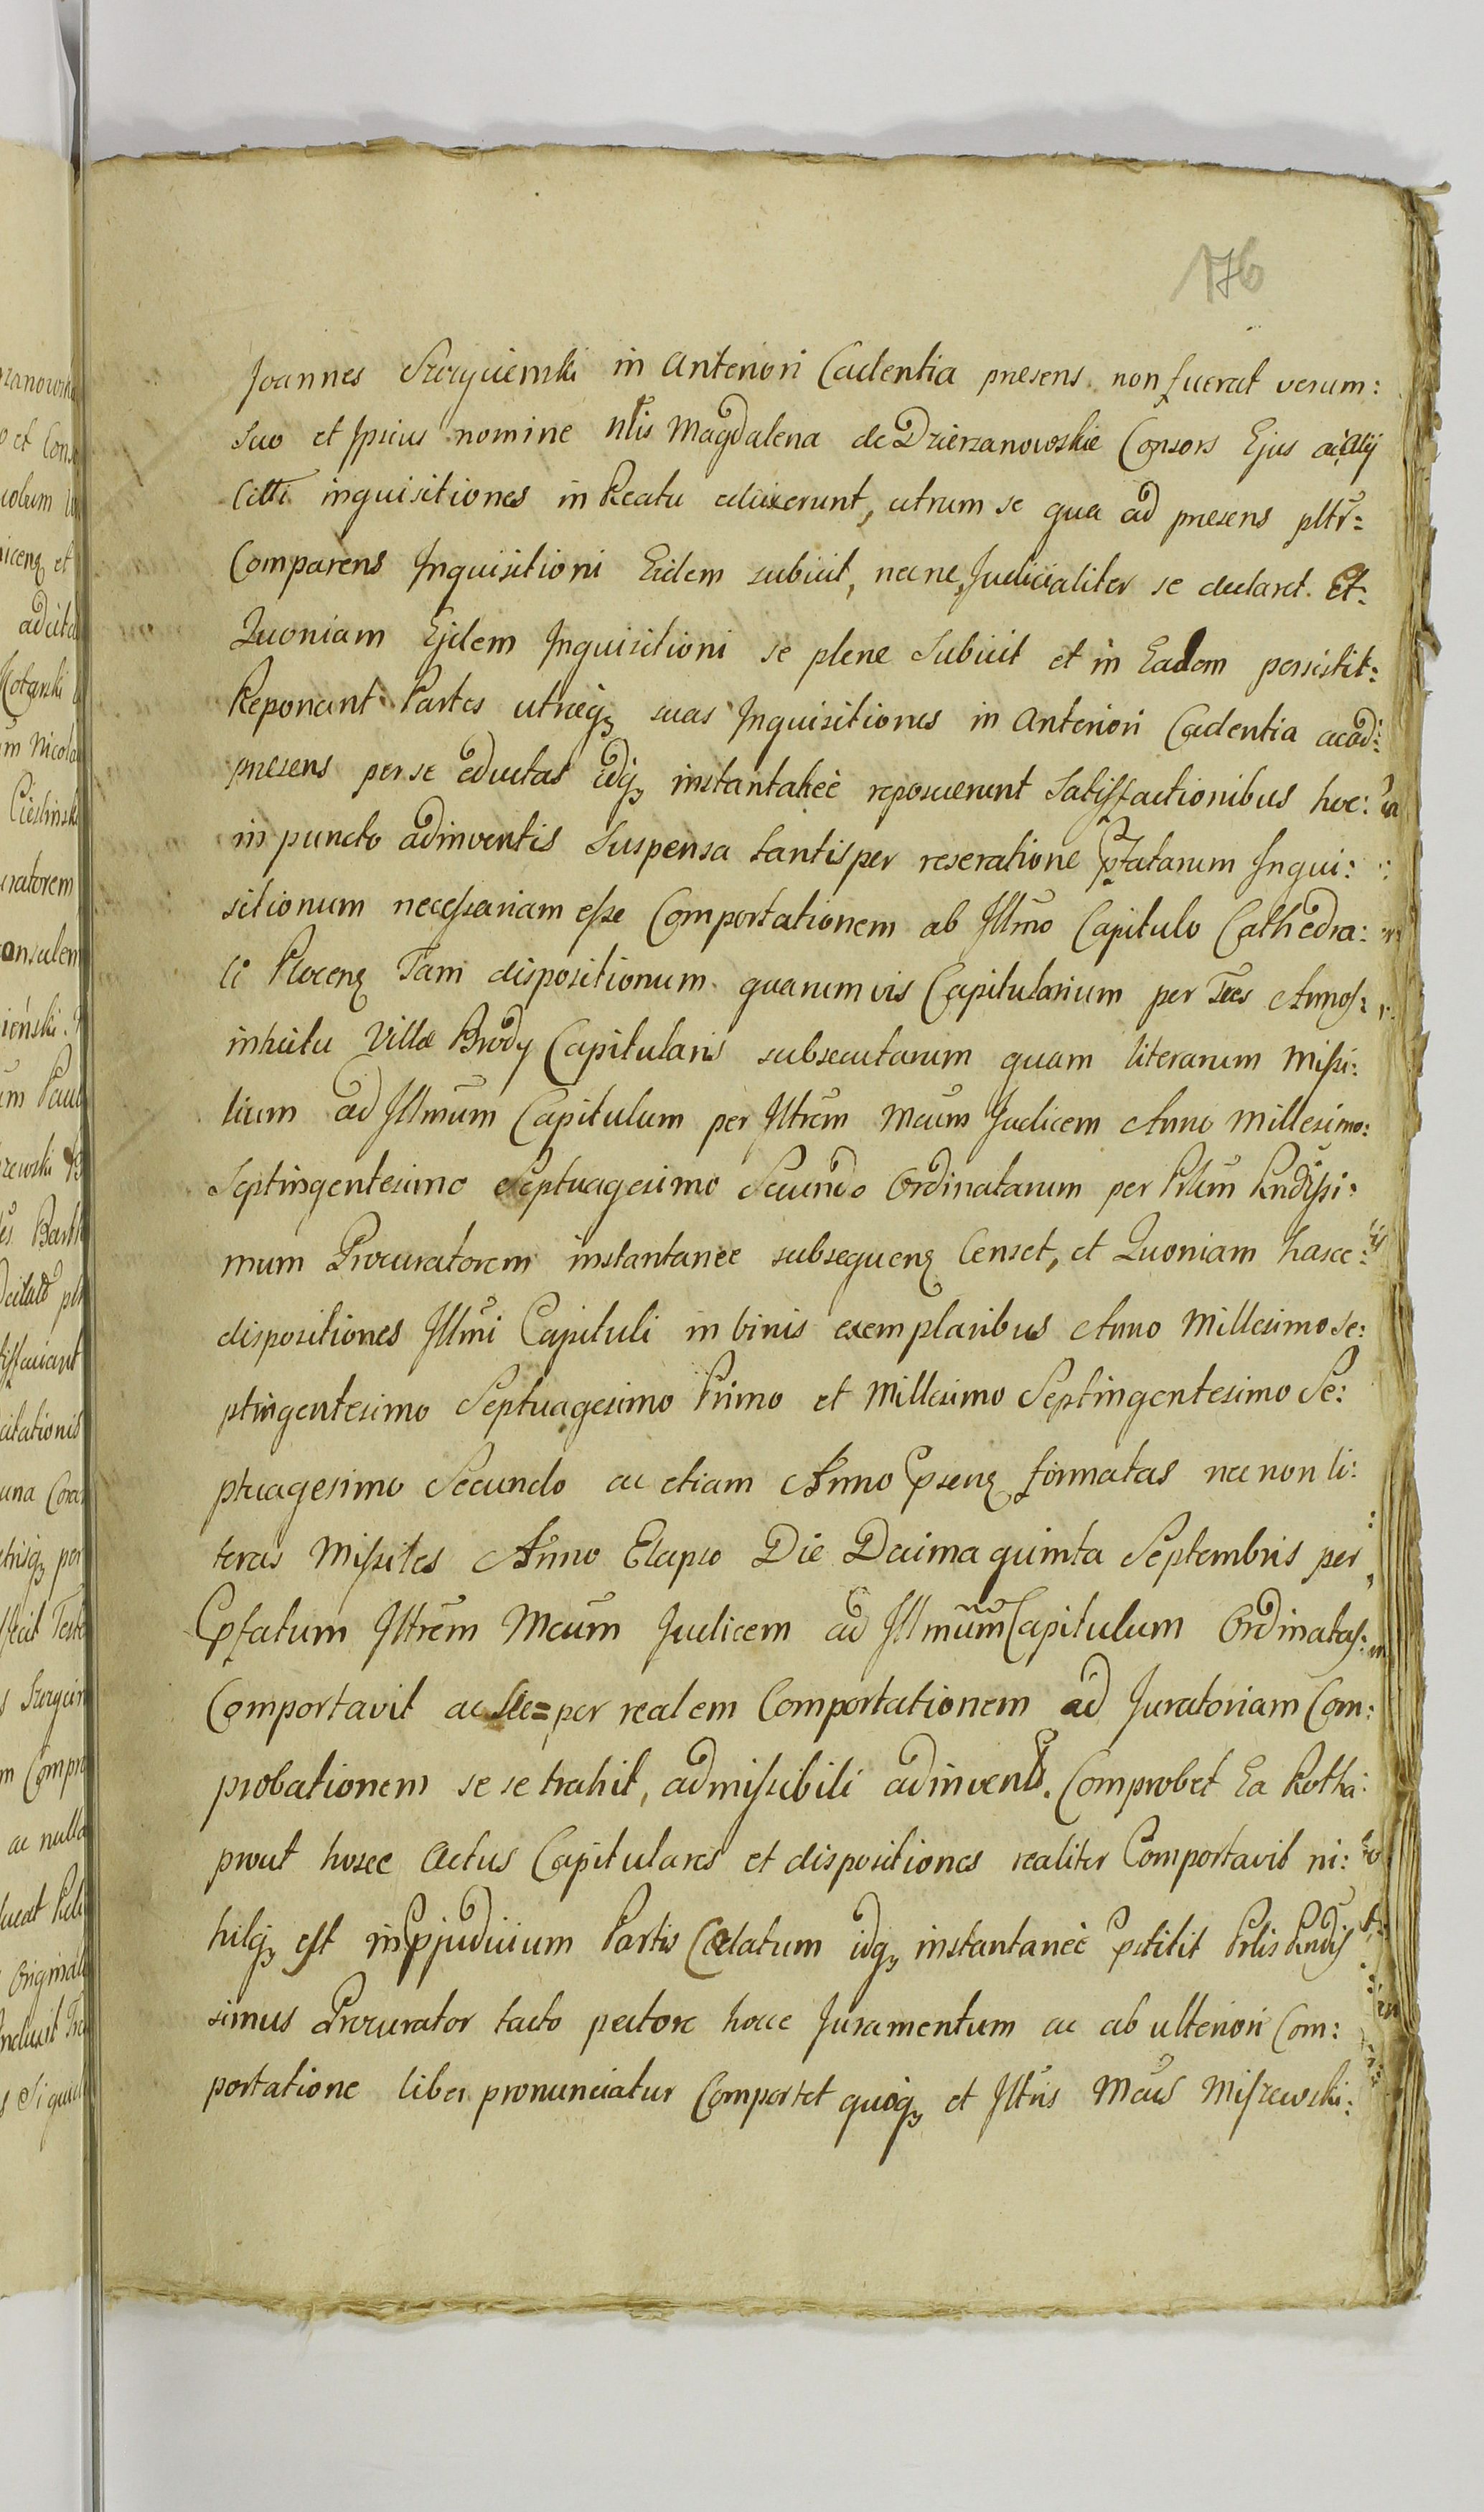 176
Joannes in Anteriori Cadentia presens non fuerat verum:
Suo et Ipsius nomine Nlis Magdalena de Dzierzanowskie Consors Ejus
Citti inquisitiones in Reatu eduxerunt, utrum se qua ad presens pltr=
Comparens Inquisitioni Eidem subicit, necne, Judicialiter se declaret. Et:
Quoniam Ejdem Inquisitioni se plene Subicit et in Eadem persistit:
Reponant Partes utræq suas Inquisitiones in Anteriori Cadentia ac ad:
presens per se eductas idq instantaneè reposuerunt Satisfactionibus hoc:
in puncto adinventis Suspensa tantisper reseratione Inqui:
sitionum necessariam esse Comportationem ab Illmo Capitulo Cathedra:
li Plocenq Tam dispositionum quarumvis Capitularium per Tres Annos:
intuitu Villæ Brody Capitularis subsecutarum quam literarum Missi:
lium ad Illmum Capitulum per Iltrem Mcum Judicem Anno Millesimo:
Septingentesimo Septuagesimo Secundo Ordinatarum per Rndissi:
mum Procuratorem instantanee subsequenq Censet, et Quoniam hasce:
dispositiones Illmi Capituli in binis exemplaribus Anno Millesimo Se:
ptingentesimo Septuagesimo Primo et Millesimo Septingentesimo Se:
ptuagesimo Secundo ac etiam Anno psenq formatas nec non li:
teras Missiles Anno Elapso Die Decima quinta Septembris per
Pfatum Iltrem Mcum Judicem ad Illmum Capitulum Ordinatas:
Comportavit ac per realem Comportationem ad Juratoriam Com:
probationem se se trahit, admissibili adinvento. Comprobet Ea Rotha:
prout hosce Actus Capitulares et dispositiones realiter Comportavit ni:
hilq est in Pjudicium Partis Cælatum idq instantaneè Pstitit
simus Procurator tacto pectore hocce Juramentum ac ab ulteriori Com:
portatione liber pronunciatur Comportet quoq et Iltris Mcus Miszewski: